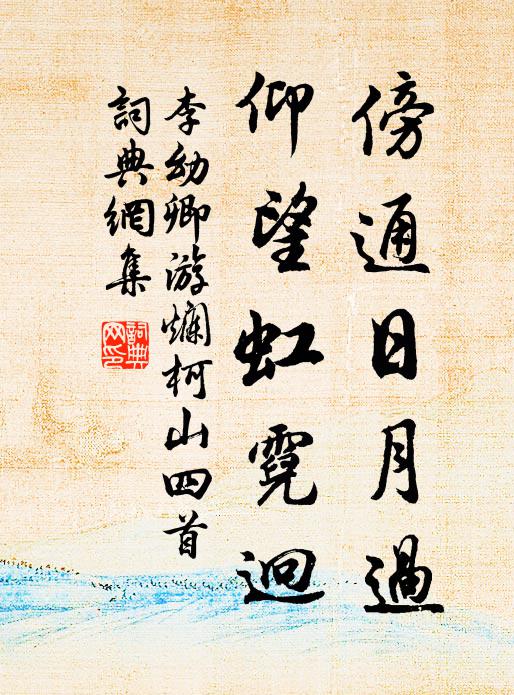 傍通日月過
仰望虹霓迴
李幼卿游爛柯山四首
詞典網集
詞典網印